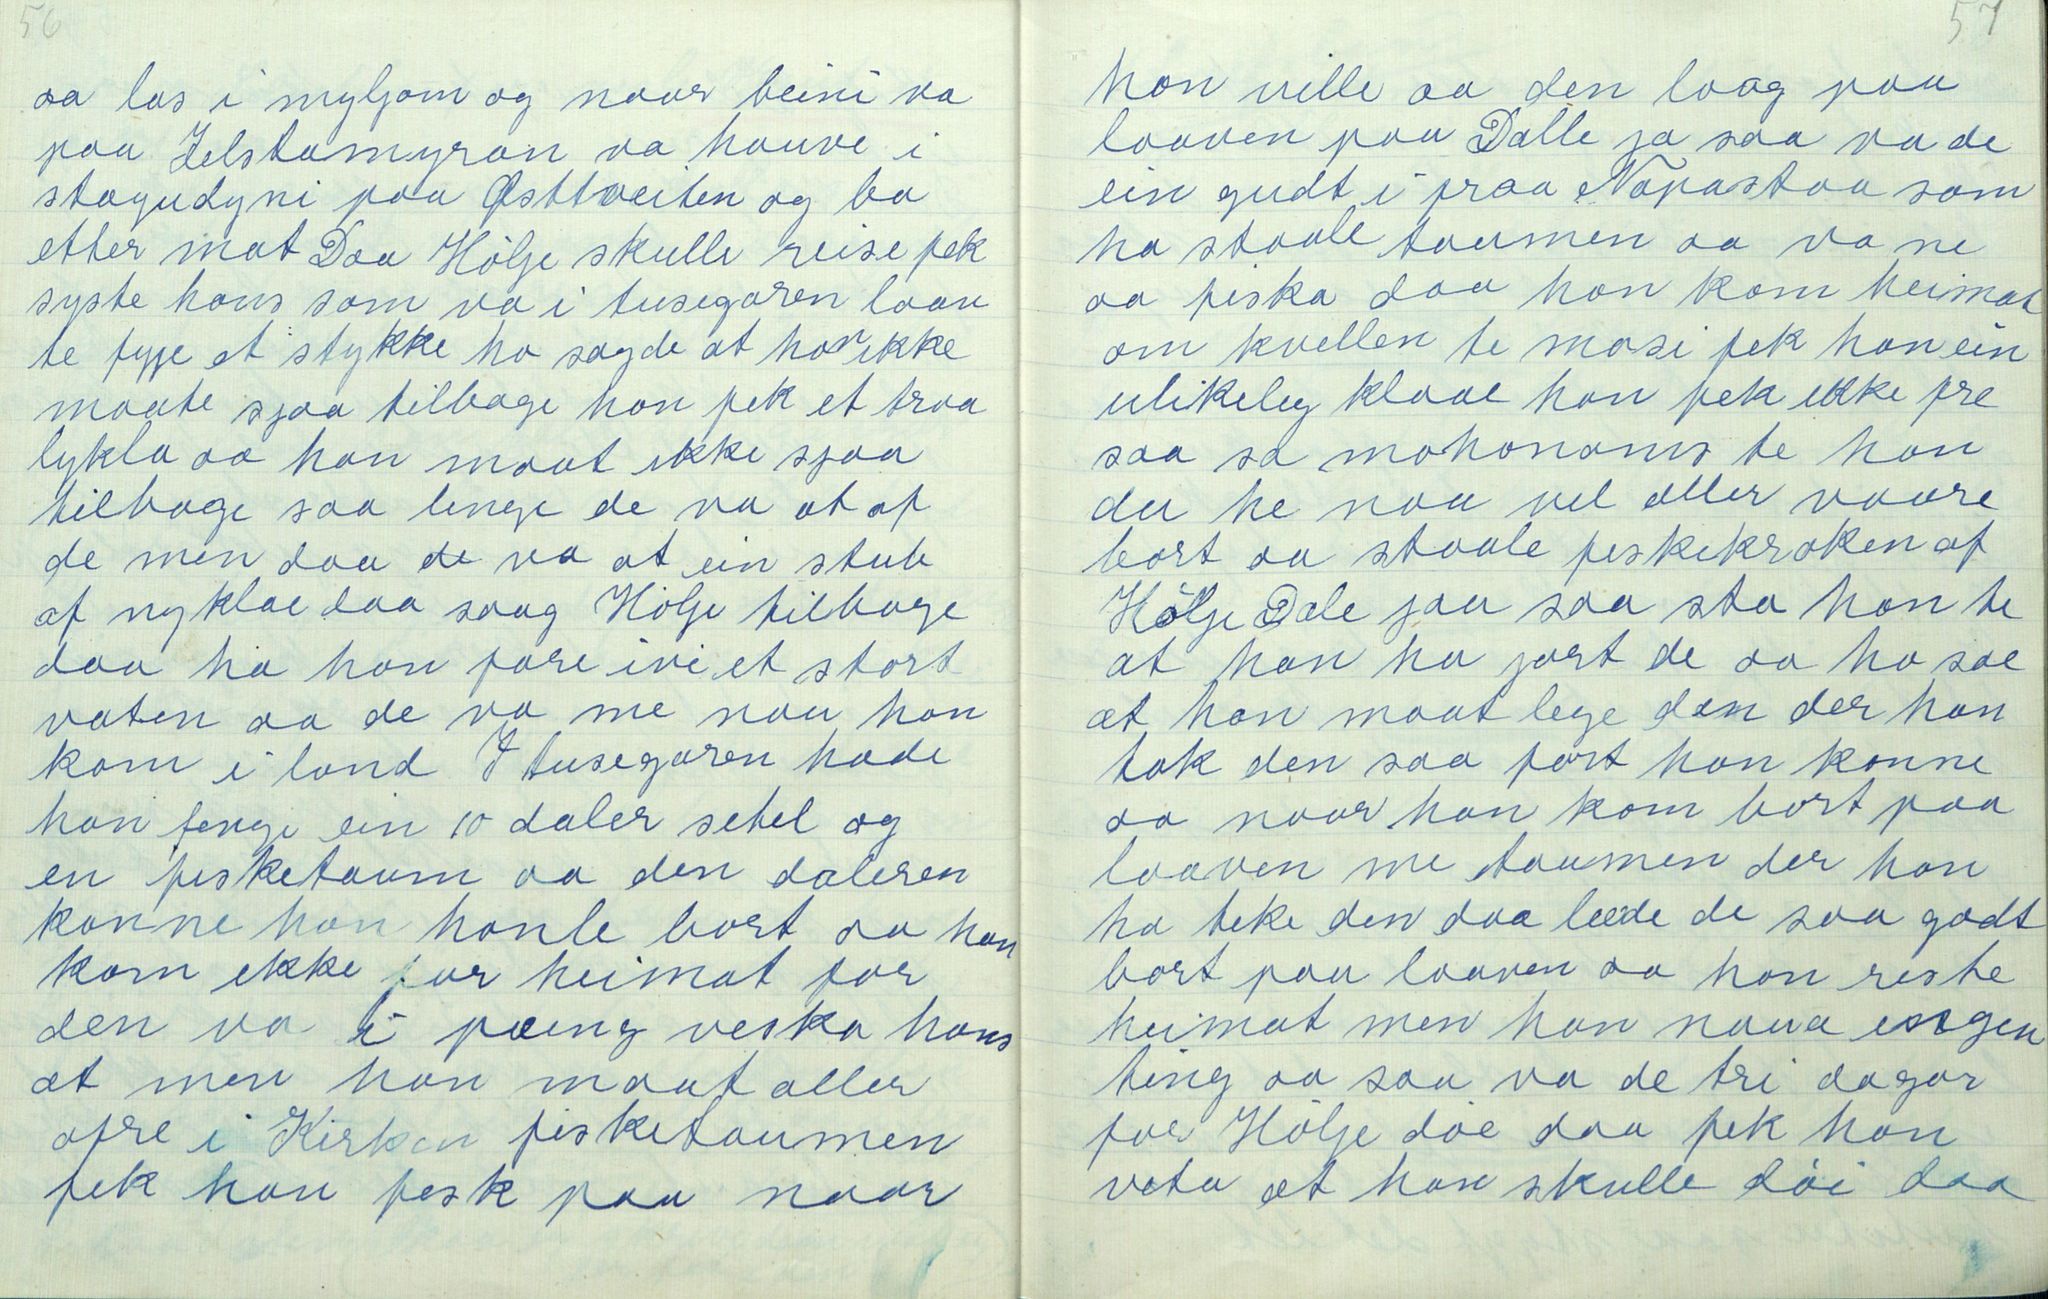 56
sa las i myljom og naar beini va
paa Jelstamyran va hauve i
stogudyni paa Østtveiten og ba
etter mat Daa Hölje skulle reise fek
syste hans som va i tusegaren laav
te fyje et stykke ho sagde at han ikke
maate sjaa tilbage han fek et traa
lykla aa han maat ikke sjaa
tilbage saa lenge de va at af
de men daa de va at ein stub
af nyklae daa saag Hölje tilbage
daa ha han fare ivi et stort
vaten aa de va me nau han
kom i land I tusegaren hade
han fenge ein 10 daler setel og
en fisketaum aa den daleren
konne han hanle bort aa han
kom ikke før heimat for
den va i pæing veska hans
at men han maat aller
ofre i Kirken fisketaumen
fek han fesk paa naar
57
han ville aa den laag paa
laaven paa Dalle ja saa va de
ein gudt i fraa Napastaa som
ha staale taumen aa va ne
aa fiska daa han kom heimat
om kvellen te mosi fek han ein
ulikeleg klaae han fek ikke fre
saa sa mohonoms te han
du he naa vel aller vaare
bort aa staale fiskekroken af
Hölje Dale jau saa sta han te
at han ha jort de aa ho sae
at han maat lege den der han
tok den saa fort han konne
aa naar han kom bort paa
laaven me taumen der han
ha teke den daa leede de saa godt
bort paa laaven aa han reiste
heimat men han naua engen
ting aa saa va de tri dagar
før Hölje döe daa fek han
veta at han skulle döi daa